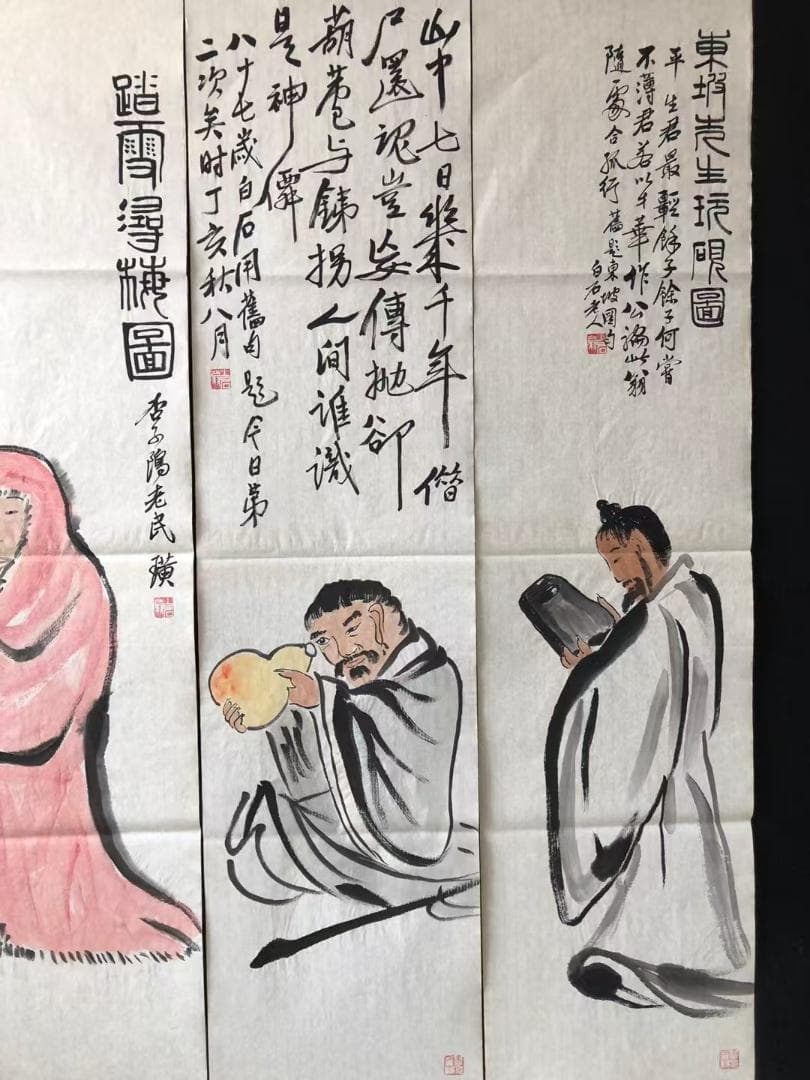 東坡先生玩硯圖
平生君最輕餘子餘子何嘗
不薄君若以才華作公論此翁
隨處合孤行 舊題東坡圖句
白石老人
山中七日樂千年借
尸還魂豈妄傳拋卻
葫蘆与鐵拐人间誰識
是神僊
八十七歲白石用舊句題今日第
二次矣时丁亥秋八月
踏雪尋梅圖
杏子隖老民 璜